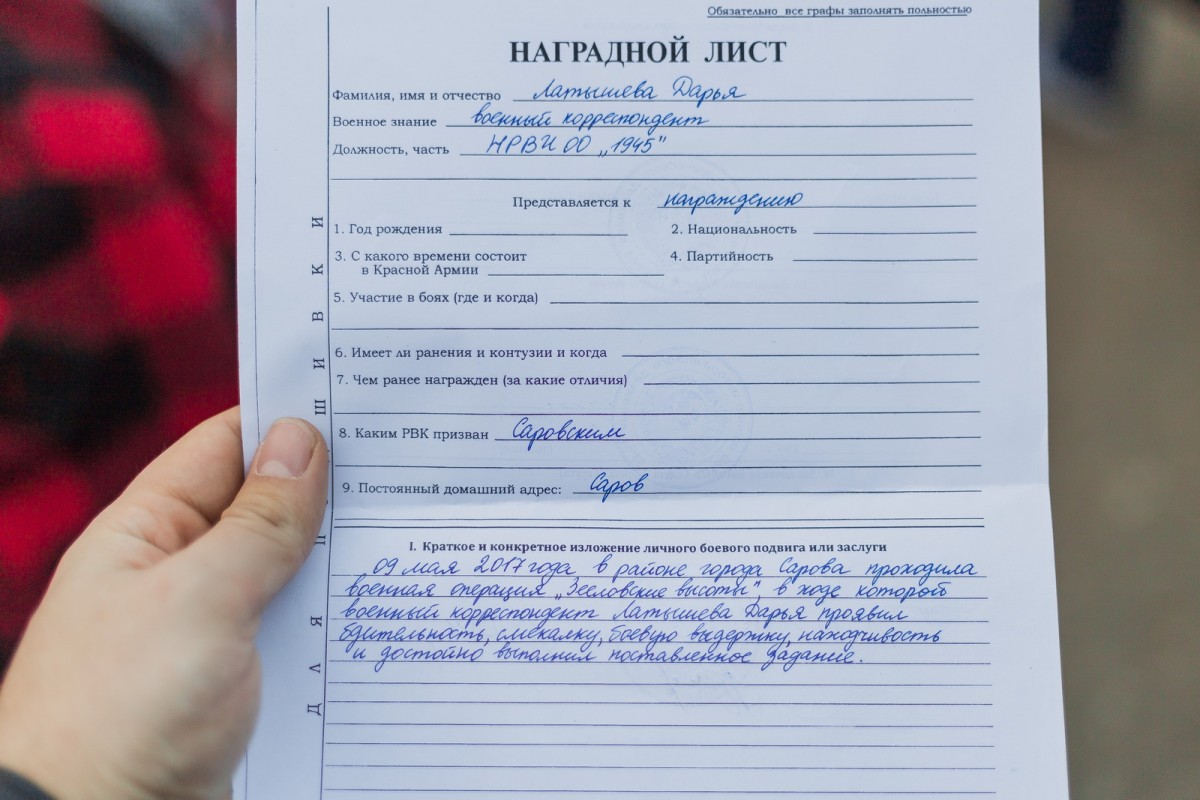 Обязательно все графы заполнять полностью
НАГРАДНОЙ ЛИСТ
Фамилия, имя и отчество Латышева Дарья
Военное знание военный корреспондент
Должность, часть НРВИ ОО „1945"
Представляется к награждению
1. Год рождения
2. Национальность
3. С какого времени состоит
в Красной Армии
4. Партийность
5. Участие в боях (где и когда)
6. Имеет ли ранения и контузии и когда
7. Чем ранее награжден (за какие отличия)
8. Каким РВК призван Саровским
9. Постоянный домашний адрес: Саров
I. Краткое и конкретное изложение личного боевого подвига или заслуги
09 мая 2017 года в районе города Сарова проходила
военная операция „Зееловские высоты", в ходе которой
военный корреспондент Латышева Дарья проявил
бдительность, смекалку, боевую выдержку, находчивость
и достойно выполнил поставленное задание.
ДЛЯ П ШИВКИ